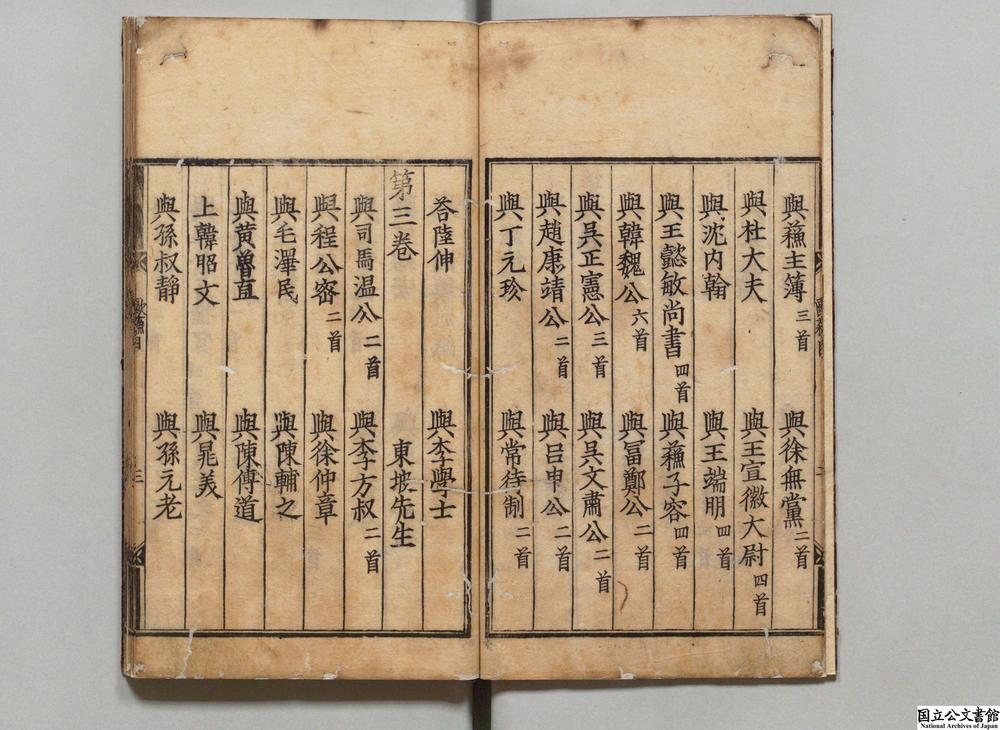 與蘓主簿三首 與徐無黨二首
與杜大夫 與王宣徽大尉四首
與沈内翰 與王端明四首
與王懿敏尚書四首 與蘓子容四首
與韓魏公六首 與冨鄭公二首
與吳正憲公三首 與吳文肅公二首
與趙康靖公二首 與吕申公二首
與丁元珍 與常待制二首
荅陸伸 與李學士
第三卷 東坡先生
與司馬温公二首 與李方叔二首
與程公密二首 與徐仲章
與毛澤民 與陳輔之
與黄魯直 與陳傳道
上韓昭文 與晁美
與孫叔静 與孫元老
歐蘓目
三
国立公文書館
National Archives of Japan